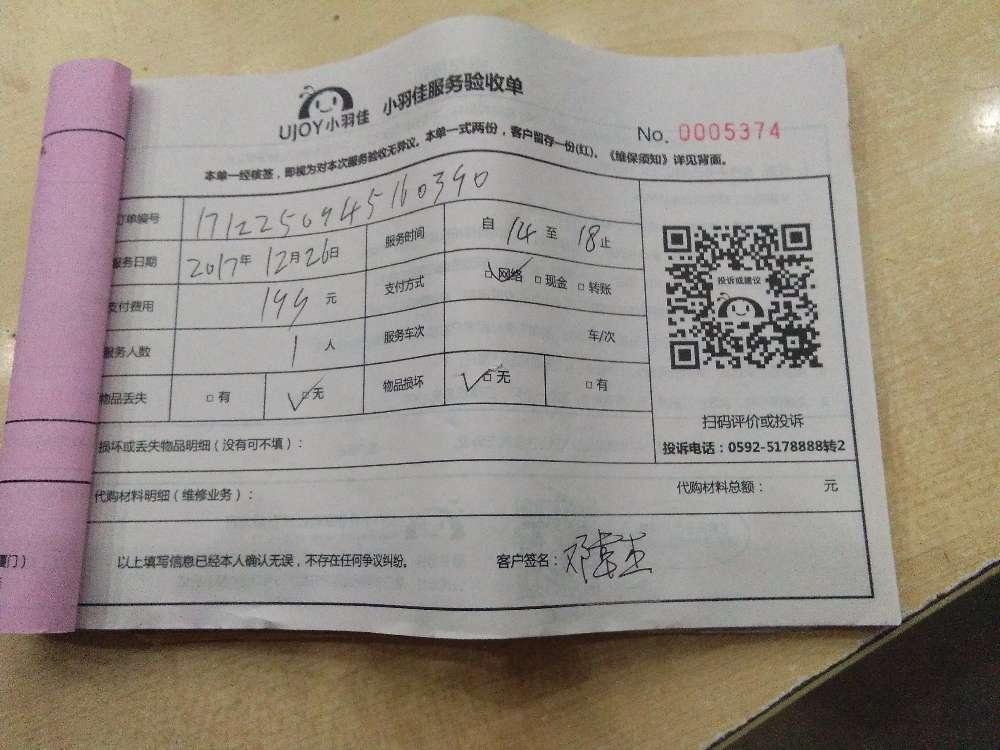 UJOY小羽佳 小羽佳服务验收单
No. 0005374
本单一经核签，即视为对本次服务验收无异议。本单一式两份，客户留存一份(红)。《维保须知》详见背面。
订单编号 1712250945160390
服务日期 2017年12月26日 服务时间 自 14 至 18止
支付费用 199 元 支付方式 □网络 □现金 □转账
投诉或建议
服务人数 1 人 服务车次 车/次
物品丢失 □有 □无 物品损坏 □无 □有
扫码评价或投诉
投诉电话：0592-5178888转2
损坏或丢失物品明细（没有可不填）：
代购材料明细（维修业务）： 代购材料总额： 元
厦门）
以上填写信息已经本人确认无误，不存在任何争议纠纷。 客户签名：